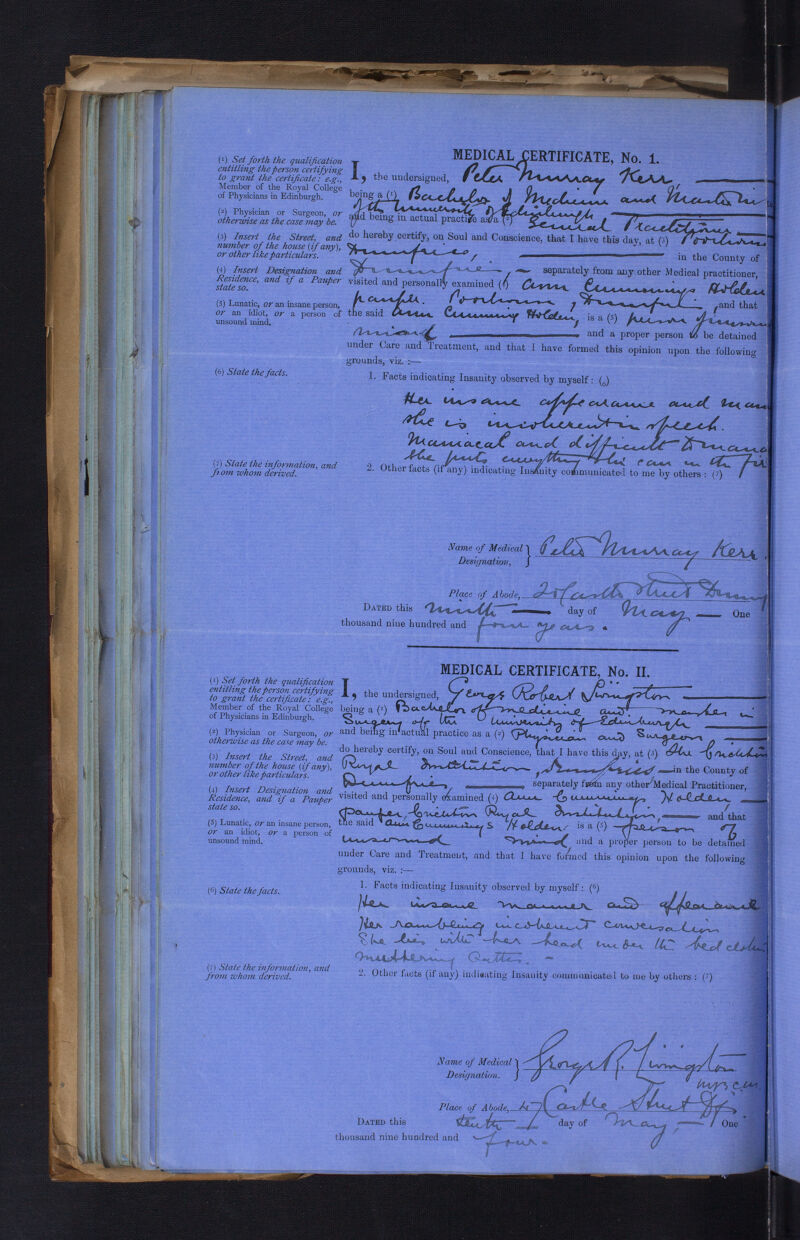 MEDICAL CERTIFICATE, No. 1.
(1) Set forth the qualification
entitling the person certifying
to grant the certificate: e.g.,
Member of the Royal College
of Physicians in Edinburgh.
(2) Physician or Surgeon, or
otherwise as the case may be.
(3) Insert the Street, and
number of the house (if any),
or other like particulars.
(4) Insert Designation and
Residence, and if a Pauper
state so.
(5) Lunatic, or an insane person,
or an idiot, or a person of
unsound mind.
I, the undersigned, Peter Murray Kerr,
being a (1) Bachelor of Medicine and Master in
of the University of Edinburgh
and being in actual practice as a (2) General Practitioner
do hereby certify, on Soul and Conscience, that I have this day, at (3)
Dumfries, in the County of
Dumfries, separately from any other Medical practitioner,
visited and personally examined (4) Ann Cummings Holden
pauper. , Dumfries ,and that
the said Ann Cumming Holden, is a (5) person of unsound
mind and a proper person to be detained
under Care and Treatment, and that I have formed this opinion upon the following
grounds, viz. :—
(6) State the facts.
1. Facts indicating Insanity observed by myself : (6)
Her insane appearance and man
She is incoherent in speech.
Maniacal and difficult to mana
She puts everything she can in the fir
(7) State the information, and
from whom derived.
2. Other facts (if any) indicating Insanity communicated to me by others : (7)
Name of Medical } Peter Murray Kerr.
Designation,
Place of Abode, Castle Street Dum
DATED this Ninth day of May One
thousand nine hundred and four years.
MEDICAL CERTIFICATE, No. II.
(1) Set forth the qualification
entitling the person certifying
to grant the certificate: e.g.,
Member of the Royal College
of Physicians in Edinburgh.
(2) Physician or Surgeon, or
otherwise as the case may be.
(3) Insert the Street, and
number of the house (if any),
or other like particulars.
(4) Insert Designation and
Residence, and if a Pauper
state so.
(5) Lunatic, or an insane person,
or an idiot, or a person of
unsound mind.
I, the undersigned, George Robert Livingston
being a (1) Bachelor of medicine and master in
Surgery of the University of Edinburgh
and being in actual practice as a (2) Physician and Surgeon
do hereby certify, on Soul and Conscience, that I have this day, at (3) The Crichton
Royal Institution, Dumfries in the County of
Dumfries, separately from any other Medical Practitioner,
visited and personally examined (4) Ann Cummings Holden
Pauper, Crichton Royal Institution, and that
the said Ann Cummings Holden is a (5) person of
unsound mind, and a proper person to be detained
under Care and Treatment, and that I have formed this opinion upon the following
grounds, viz. :—
(6) State the facts.
1. Facts indicating Insanity observed by myself : (6)
Her insane manner and appearance
Her rambling incoherent conversation
She lies with her head under the bed clothes
muttering
(7) State the information, and
from whom derived.
2. Other facts (if any) indicating Insanity communicated to me by others : (7)
Name of Medical } George R. Livingston
Designation. M.B. C.M.
Place of Abode, 47 Castle Street Dfs.
DATED this tenth day of May, One
thousand nine hundred and four.